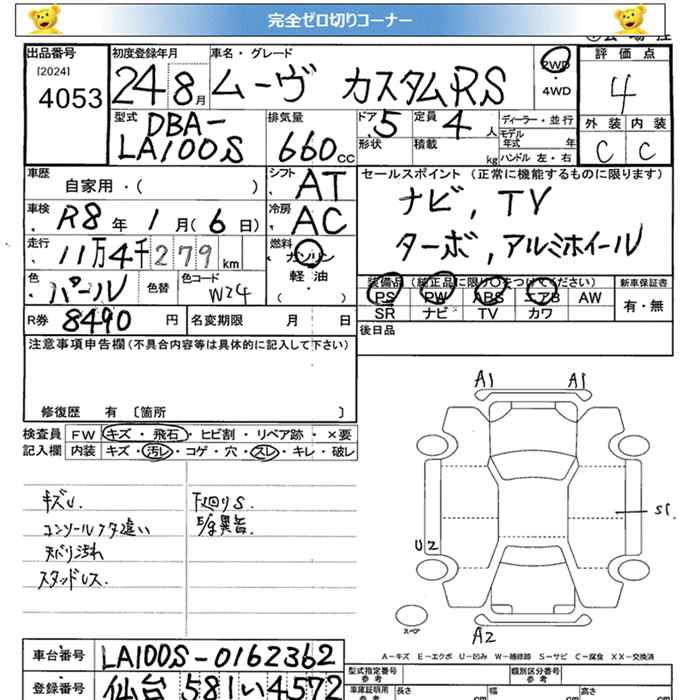 完全ゼロ切りコーナー
出品番号 [2024] 4053
初度登録年月 24 8月
車名・グレード ムーヴ カスタムRS
2WD・4WD
評価点 4
外装 C 内装 C
型式 DBA-LA100S
排気量 660cc
ドア 5 定員 4人
形状 積載 kg
ディーラー・並行
モデル年式 年
ハンドル 左・右
車歴 自家用・( )
シフト AT
車検 R8年1月(6日)
冷房 AC
走行 11万4千279km
燃料 ガソリン 軽油・( )
色 パール 色替 色コード W24
R券 8490円 名変期限 月 日
セールスポイント(正常に機能するものに限ります)
ナビ, TV
ターボ, アルミホイール
装備品(純正品に限り○をつけてください) 新車保証書
PS PW ABS エアB AW 有・無
SR ナビ TV カワ
後日品
注意事項申告欄(不具合内容等は具体的に記入して下さい)
修復歴 有〔箇所 〕
検査員 FW キズ・飛石・ヒビ割・リペア跡・×要
記入欄 内装 キズ・汚レ・コゲ・穴・スレ・キレ・破レ
キズU.
コンソールフタ違い
天バリ汚れ
スタッドレス.
下廻りS.
E/g異音.
A1 A1
S1.
U2
スペア
A2
A-キズ E-エクボ U-凹み W-補修跡 S-サビ C-腐食 XX-交換済
車台番号 LA100S-0162362
登録番号 仙台 581 い 4572
型式指定番号 参考 類別区分番号 参考
車庫証明用 参考 長さ cm 幅 cm 高さ cm